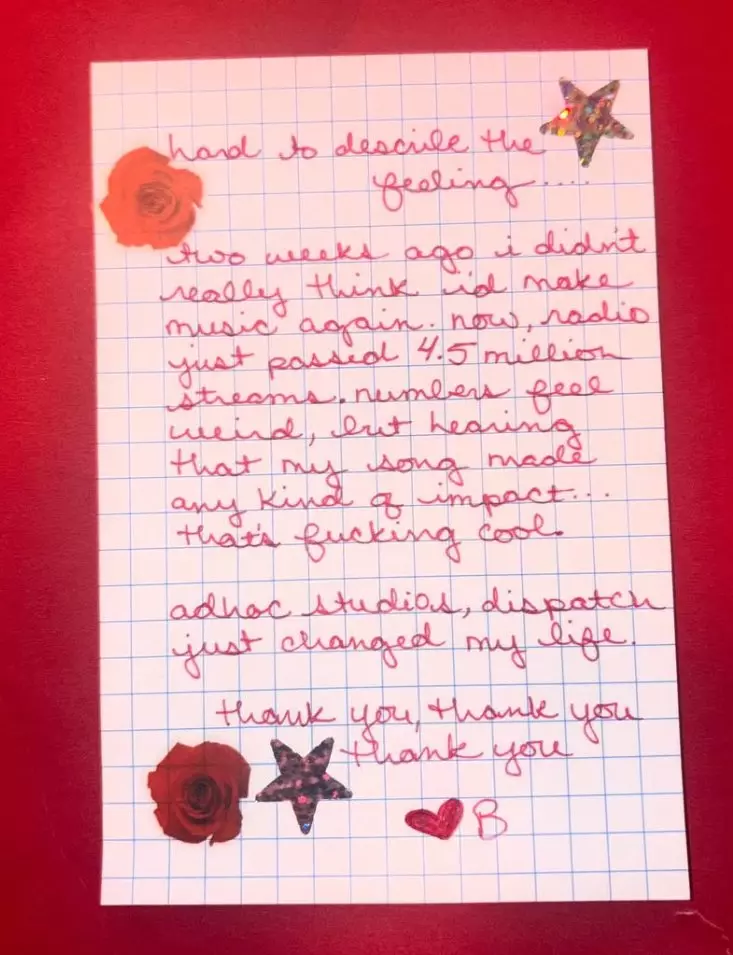 hard to describe the
feeling....
two weeks ago i didn't
really think id make
music again. now, radio
just passed 4.5 million
streams. numbers feel
weird, but hearing
that my song made
any kind of impact...
that's fucking cool.
adhoc studios, dispatch
just changed my life.
thank you, thank you
thank you
B